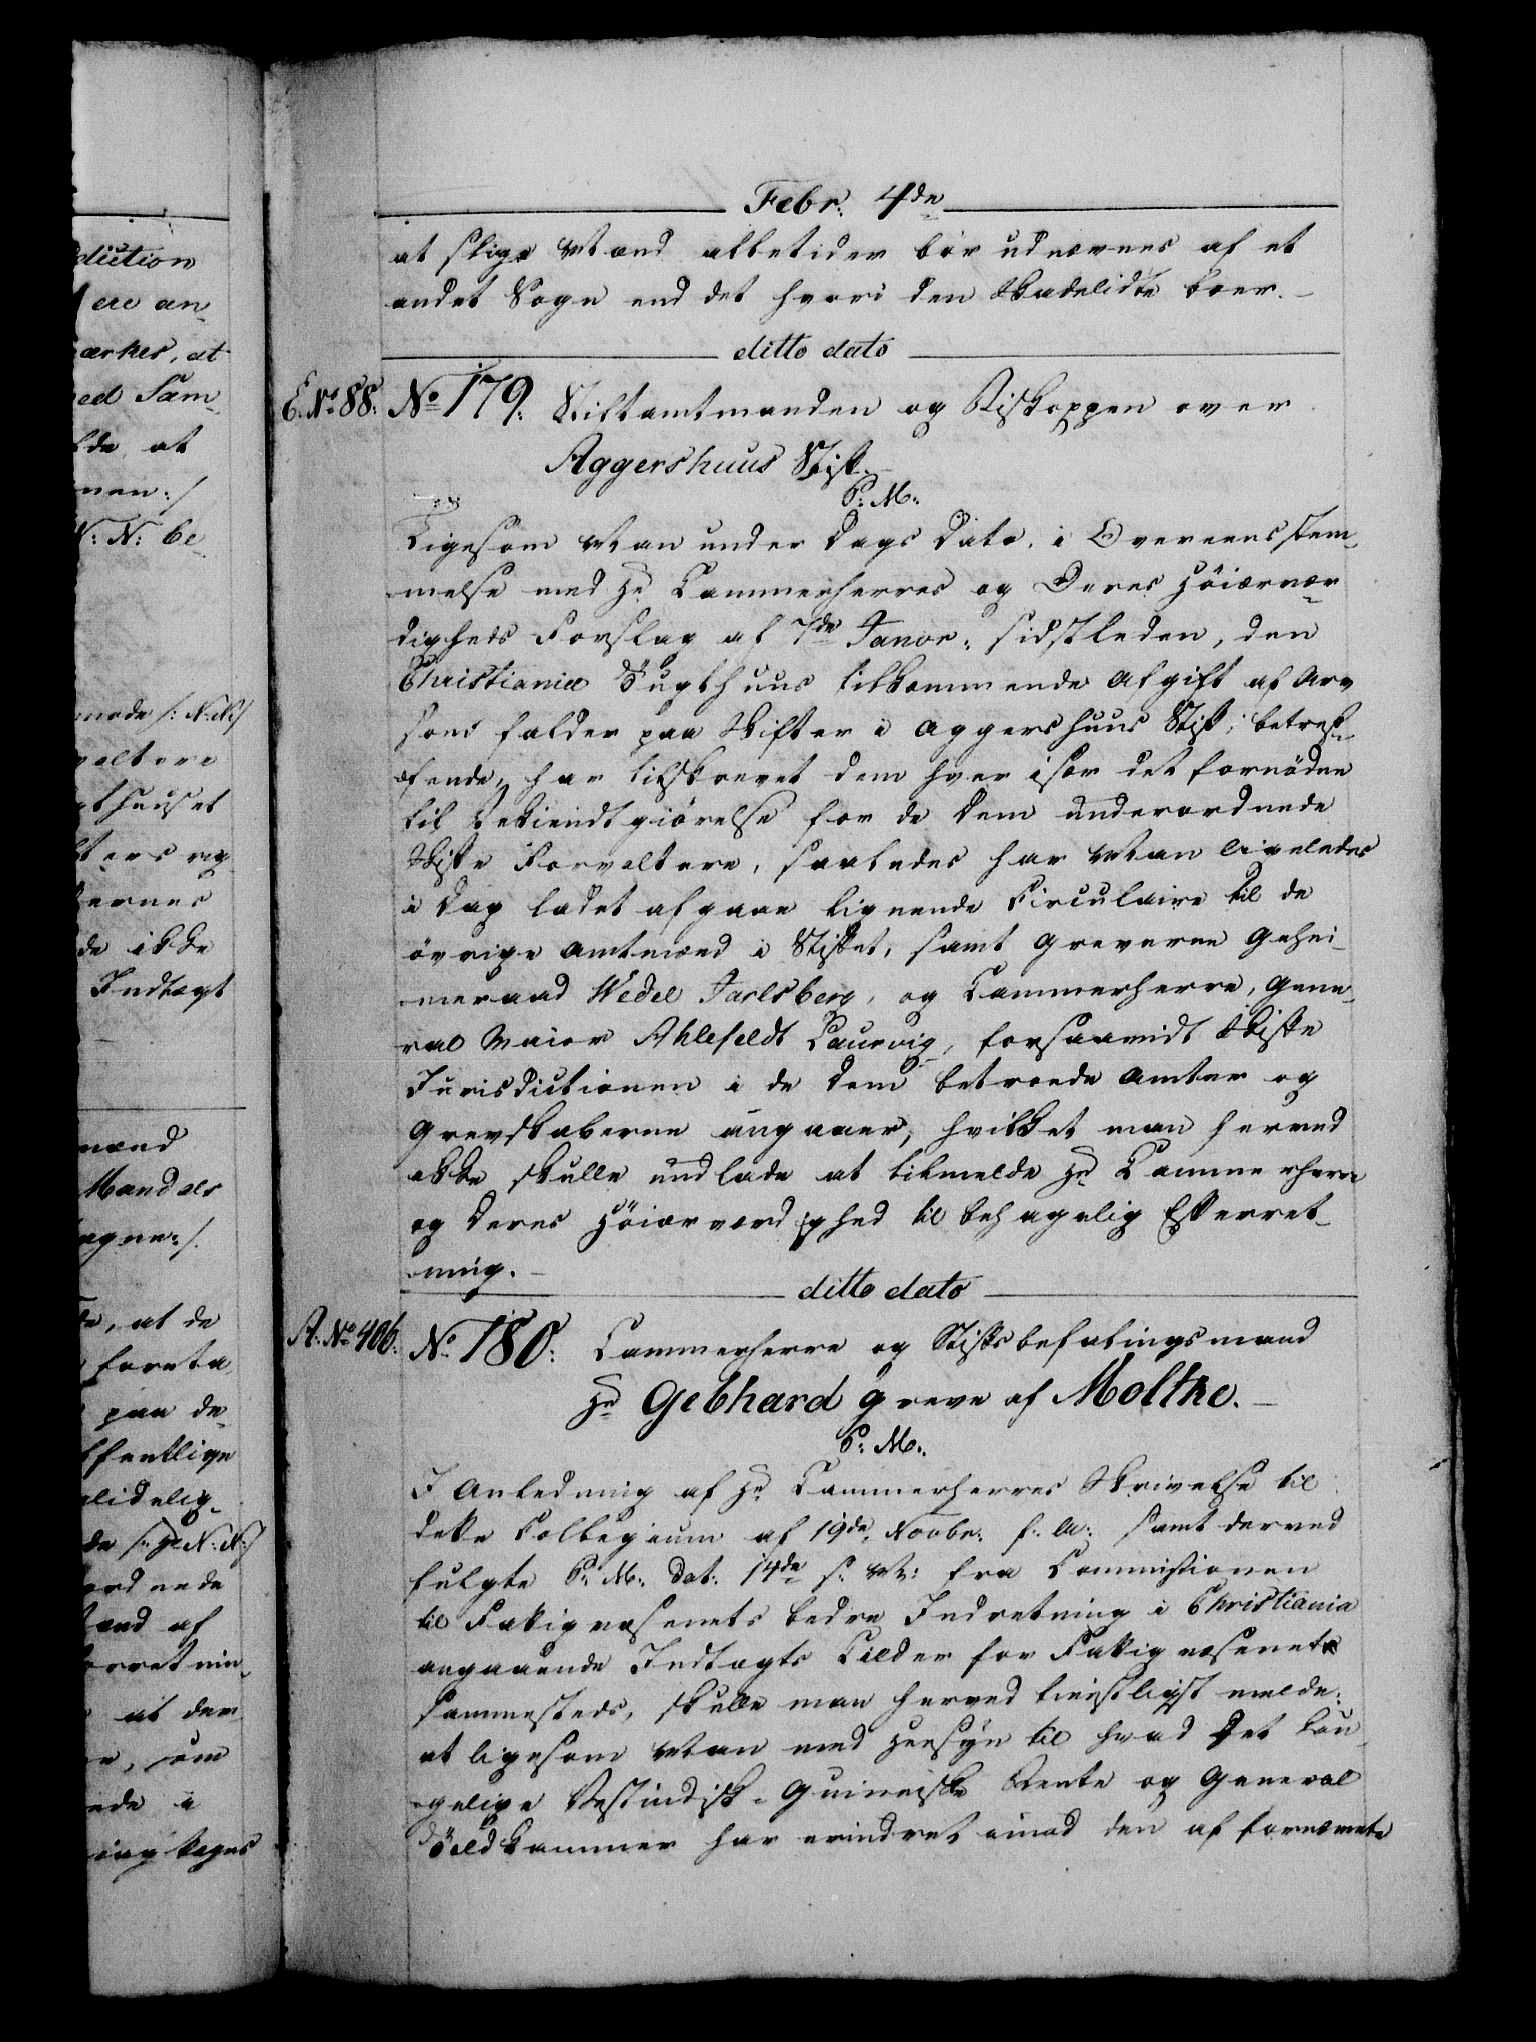 diction
ere an¬
ærkes, at
ed Sam¬
lde at
nen :/
N: N: be
rnede /: N: N:/
valtere
gthuuset
ters og
ernes
de ikke
Indtægt
mænd
Mandals
agne :/.
de, at de
foreta
paa de¬
ffentlige
lidelig¬
de /: Hr N: N:/
ordnede
ænd af
erretnin¬
at der
e, som
ede i
ing tages
Febr: 4de
at slige Mænd alletider bør udnævnes af et
andet Sogn end det hvori den Skadelidte boer. –
ditto dato
E. No 88: No 179: Stiftamtmanden og Biskoppen over
Aggershuus Stift. –
P: M:
Ligesom Man under Dags Dato, i Overeensstem¬
melse med Hr Cammerherres og Deres Høiærvær¬
digheds Forslag af 7de Janvr: sidstleden, den
Christiania Tugthuus tilkommende Afgift af Arv
som falder paa Skifter i Aggershuus Stift, betref¬
fende, har tilskrevet dem hver især det fornødne
til Bekiendtgiørelse for de dem underordnede
Skifte Forvaltere, saaledes har Man ligeledes
i Dag ladet afgaae lignende Circulaire til de
øvrige Amtmænd i Stiftet, samt Greverne Gehei¬
meraad Wedel Jarlsberg, og Cammerherre, Gene¬
ral Maior Ahlefeldt Laurvig, forsaavidt Skifte
Jurisdictionen i de dem betroede Amter og
Grevskaberne angaaer, hvilket man herved
ikke skulle undlade at tilmelde Hr Cammerherre
og Deres Høiærværdighed til behagelig Efterret¬
ning. –
ditto dato
A. No 406. No 180: Cammerherre og Stiftsbefalingsmand
Hr Gebhard Greve af Moltke. –
P: M:
I Anledning af Hr Cammerherres Skrivelse til
dette Collegium af 19de Novbr: f: A: samt derved
fulgte P: M: dat: 14de s: M: fra Commissionen
til Fattigvæsenets bedre Indretning i Christiania
angaaende Indtægts Kilder for Fattigvæsenet
sammesteds, skulle man herved tienstligst melde:
at ligesom Man med Hensyn til hvad Det kon¬
gelige Vestindisk-Guineiske Rente og General
Toldkammer har erindret imod den af fornævnte